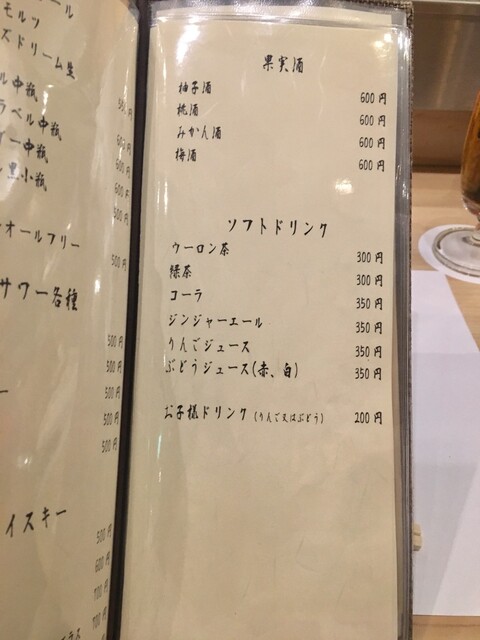 モルツ
ズドリーム生
ル中瓶
ラベル中瓶
イー中瓶
黒小瓶
オールフリー
500円
サワー各種
500円
500円
500円
500円
500円
イスキー
500円
600円
700円
700円
果実酒
柚子酒 600円
桃酒 600円
みかん酒 600円
梅酒 600円
ソフトドリンク
ウーロン茶 300円
緑茶 300円
コーラ 350円
ジンジャーエール 350円
りんごジュース 350円
ぶどうジュース(赤、白) 350円
お子様ドリンク (りんご又はぶどう) 200円